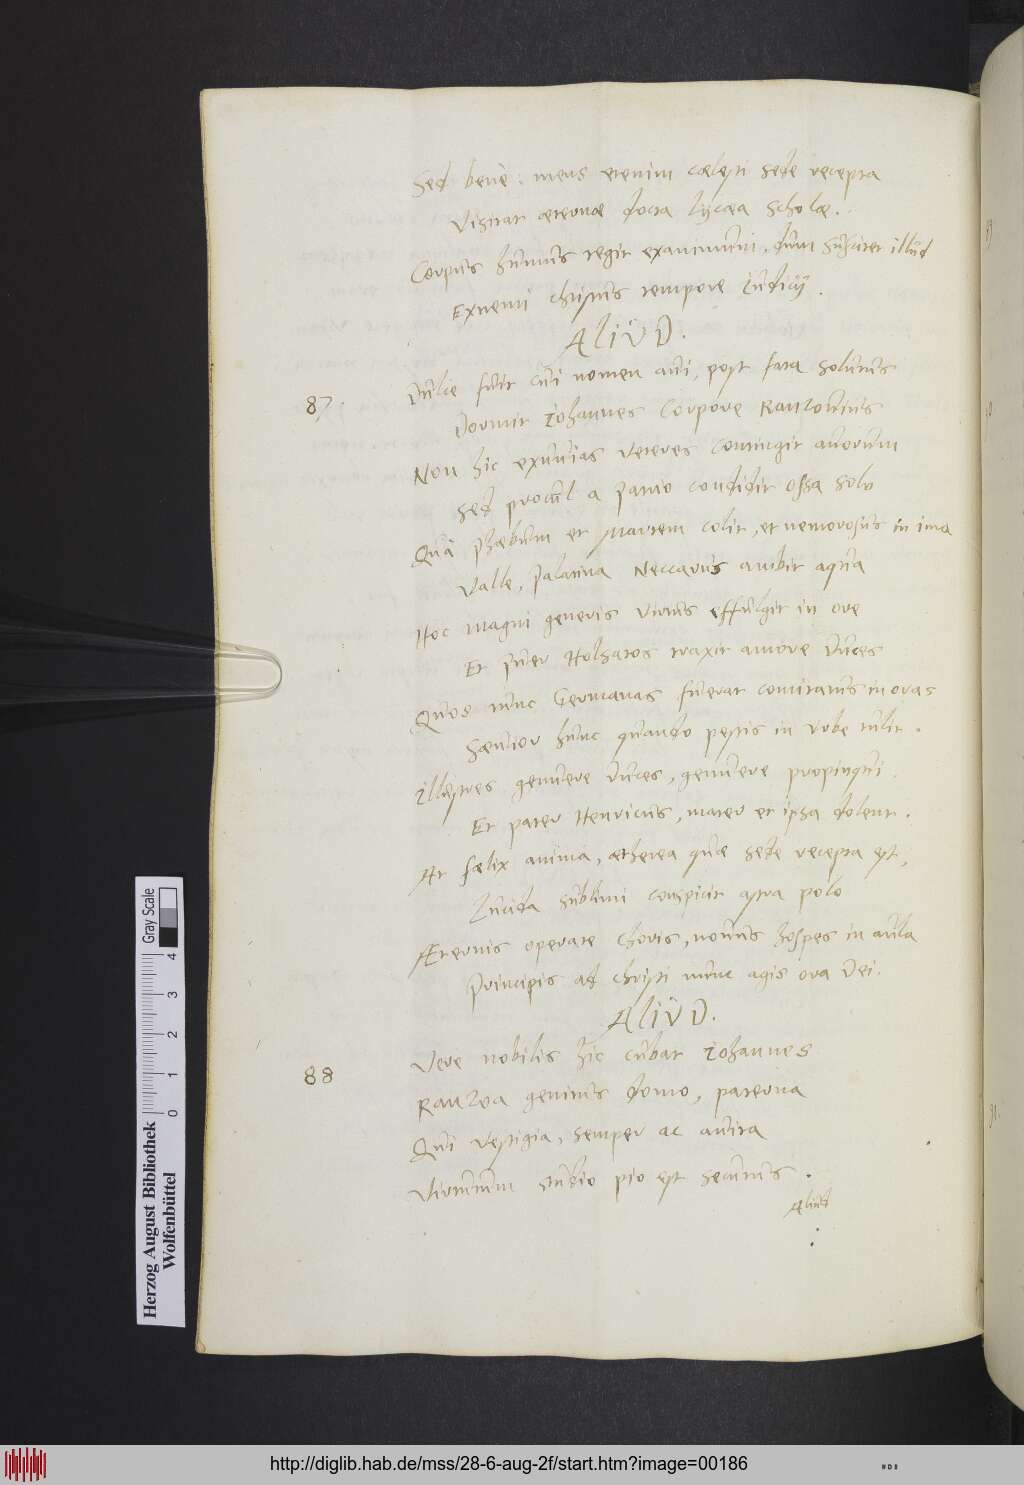 Sed benè: mens etenim cælesti sede recepta
Visitat æternæ docta lycæa scholæ.
Corpus humus tegit exanimum, dum suscitet illud
Extremi christus tempore iudicij.
ALIUD.
87. Dulce fuit cui nomen aui, post fata solutus
Dormit Iohannes corpore Ranzouius
Non hic exuuias veteres contingit auorum
Sed procul a patrio condidit ossa solo
Quà phæbum et Martem colit, et nemorosus in ima
Valle, palatina Neccarus ambit aqua
Hoc magni generis virtus effulgit in ore
Et puer Holsatos traxit amore Duces
Quos nunc Germanas fuerat comitatus in oras
Sæuior hunc quando pestis in vrbe tulit.
Illustres gemuere Duces, gemuere propinqui
Et pater Henricus, mater et ipsa dolent.
At fælix anima, ætherea quæ sede recepta est,
Lucida sublimi conspicit astra polo
Æternis operare choris, nouus hospes in aula
Principis ad christi nunc agis ora Dei.
ALIUD.
88 Vere nobilis hic cubat Iohannes
Ranzoa genitus domo, paterna
Qui vestigia, semper ac auita
Virtutum studio pio est secutus.
Aliud
Herzog August Bibliothek
Wolfenbüttel
0 1 2 3 4
Gray Scale
http://diglib.hab.de/mss/28-6-aug-2f/start.htm?image=00186